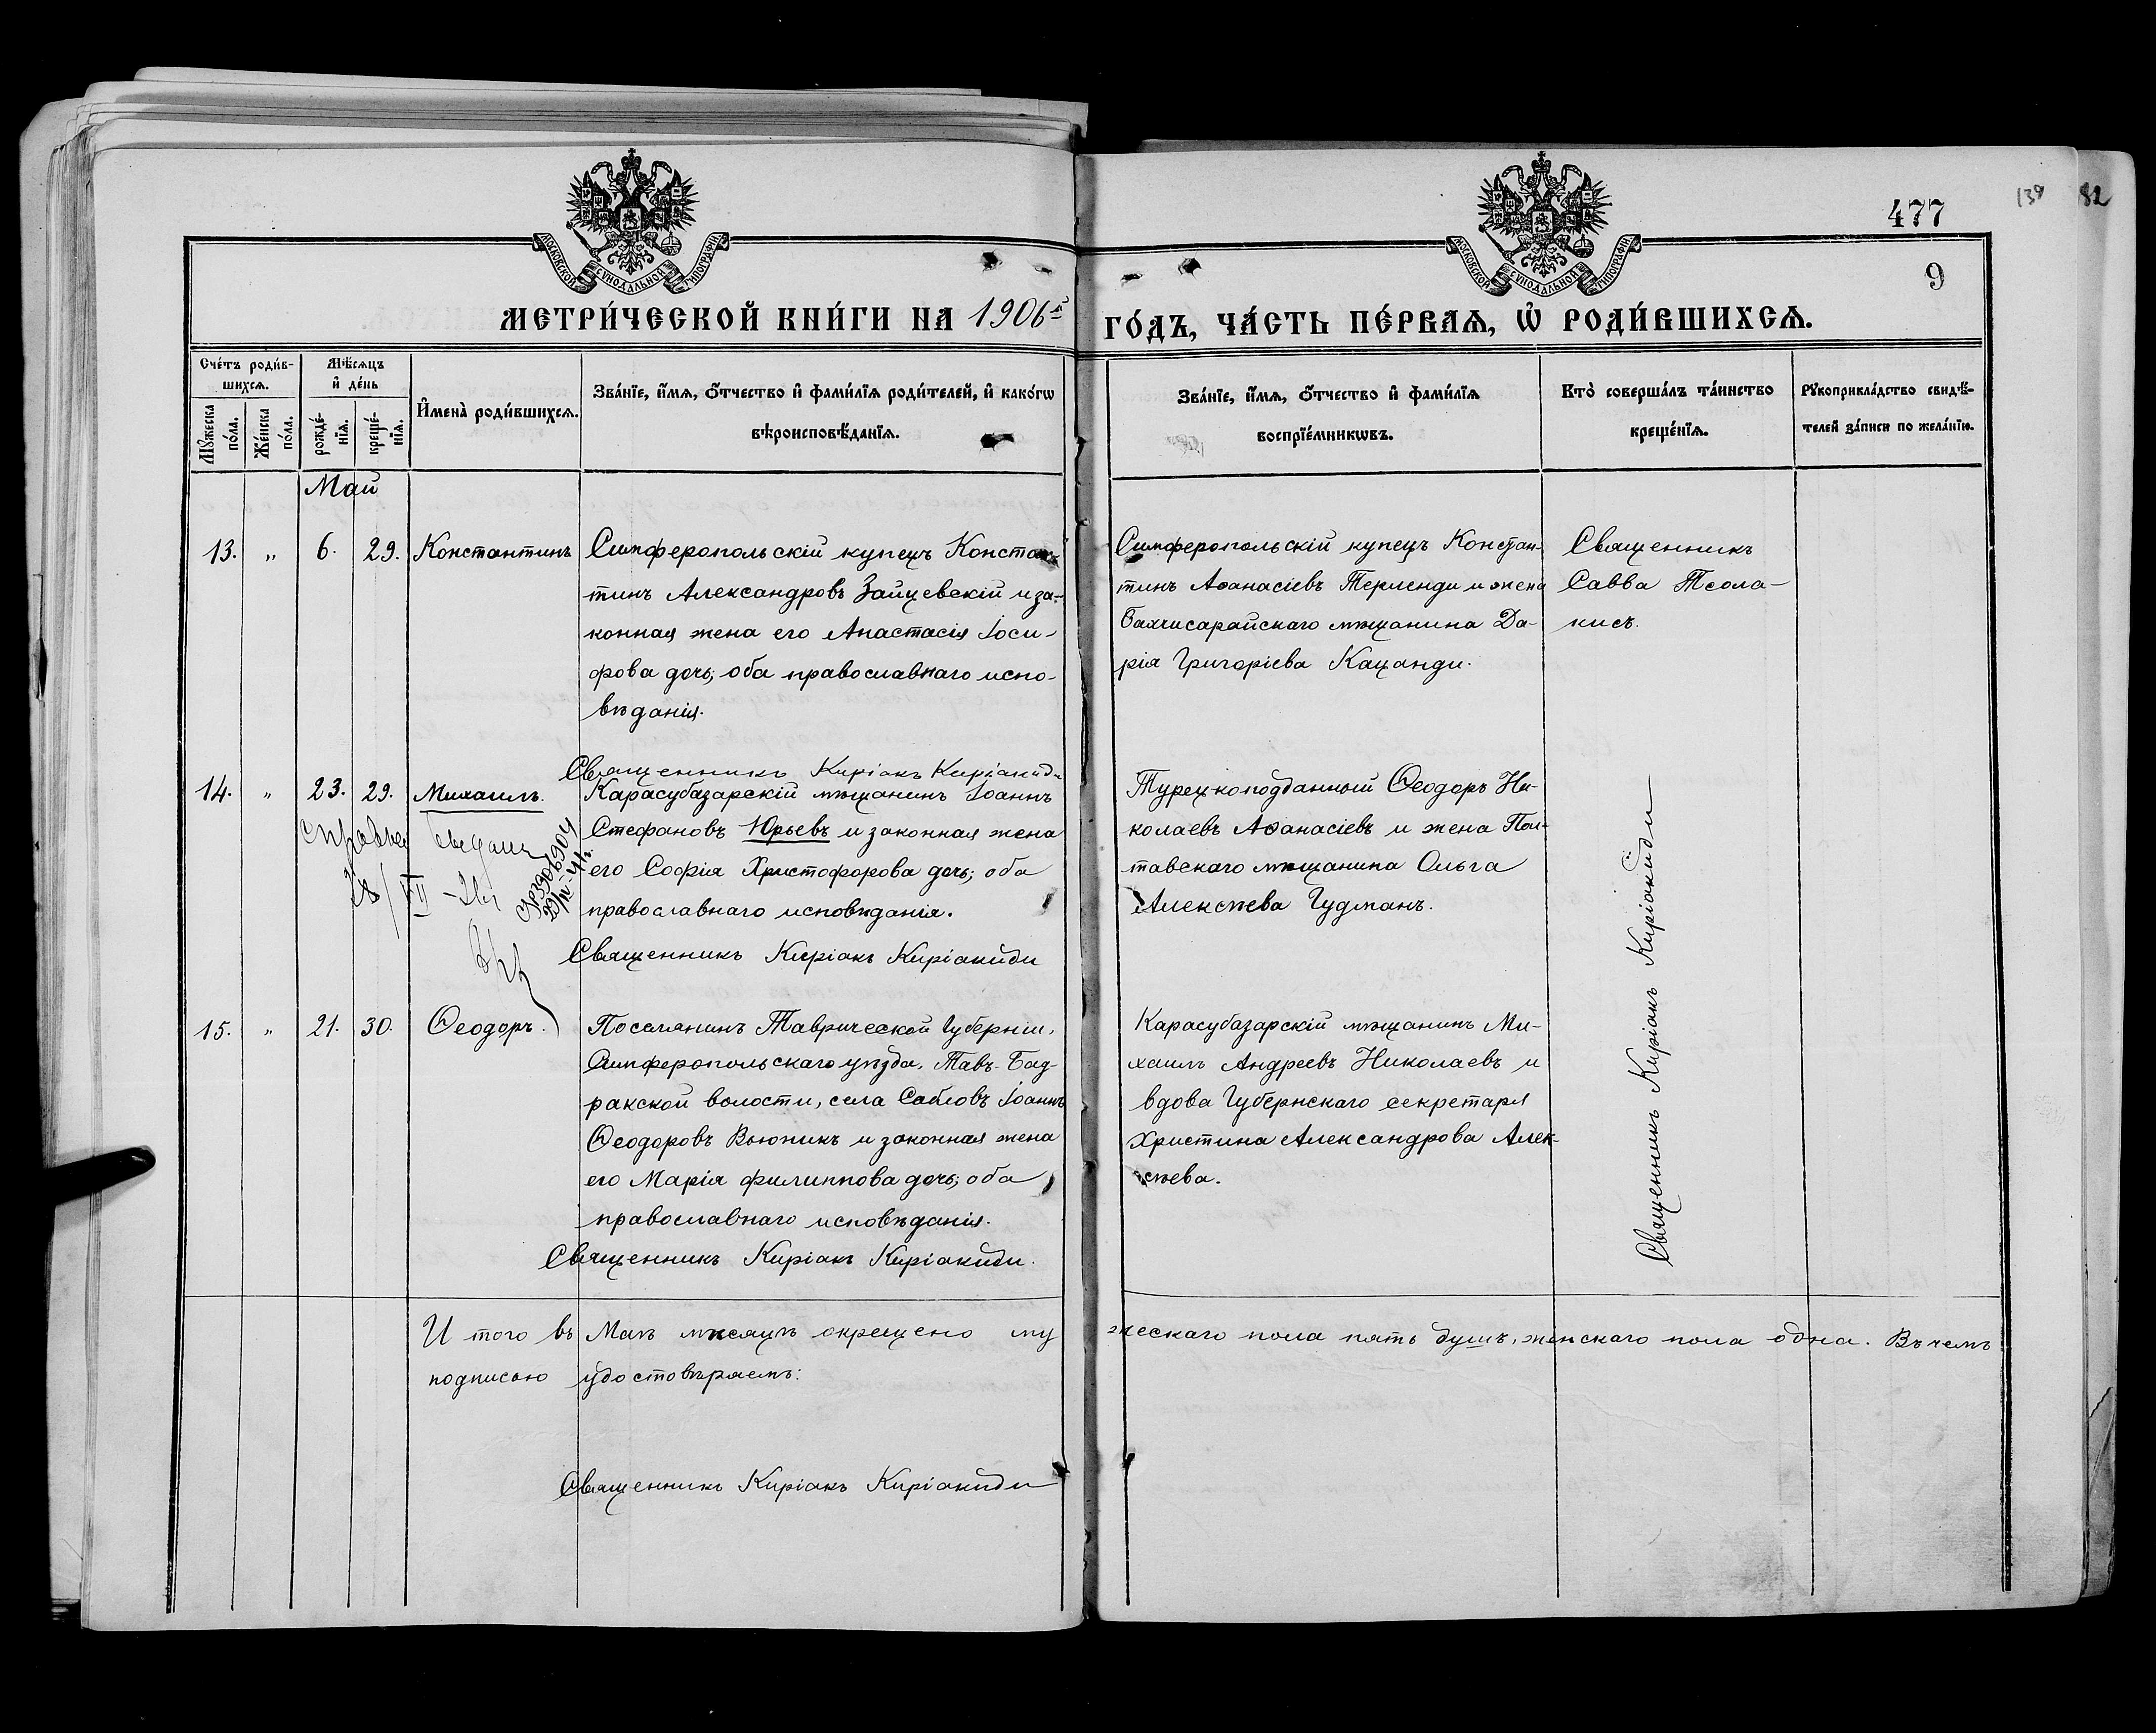 477
139
82
9
МОСКОВСКОЙ СѴНОДАЛЬНОЙ ТИПОГРАФІИ
МОСКОВСКОЙ СѴНОДАЛЬНОЙ ТИПОГРАФІИ
МЕТРИ́ЧЕСКОЙ КНИ́ГИ НА 1906й ГО́ДЪ, ЧА́СТЬ ПЕ́РВАѦ, Ѡ҆ РОДИ́ВШИХСѦ.
Сче́тъ роди́в-
шихсѧ.
Мꙋжеска по́ла.
Же́нска по́ла.
Мѣ́сѧцъ
и҆ де́нь
рожде́-
нїѧ.
креще́-
нїѧ.
И҆мена̀ роди́вшихсѧ.
Зва́нїе, и҆́мѧ, ѻ҆́тчество и҆ фами́лїѧ роди́телей, и҆ како́гѡ
вѣроисповѣ́данїѧ.
Зва́нїе, и҆́мѧ, ѻ҆́тчество и҆ фами́лїѧ
воспрїе́мникѡвъ.
Кто̀ соверша́лъ та́инство
креще́нїѧ.
Рꙋкоприкла́дство свидѣ́-
телей за́писи по жела́нїю.
Май
13. „ 6. 29. Константинъ
Симферопольскій купецъ Констан-
тинъ Александровъ Зайцевскій и за-
конная жена его Анастасія Іоси-
фова дочь; оба православнаго испо-
вѣданія.
Священникъ Киріакъ Киріакиди
Симферопольскій купецъ Констан-
тинъ Аѳанасіевъ Терленди и жена
Бахчисарайскаго мѣщанина Да-
рія Григоріева Кацанди.
Священникъ
Савва Тсола-
кисъ.
14. „ 23. 29. Михаилъ.
справка выдана
28/VII
29/IV-41г.
Карасубазарскій мѣщанинъ Іоаннъ
Стефановъ Юрьевъ и законная жена
его Софія Христофорова дочь; оба
православнаго исповѣданія.
Священникъ Киріакъ Киріакиди
Турецкоподданный Ѳеодоръ Ни-
колаевъ Аѳанасіевъ и жена Пол-
тавскаго мѣщанина Ольга
Алексѣева Гудманъ.
Священникъ Киріакъ Киріакиди
15. „ 21. 30. Ѳеодоръ.
Поселянинъ Таврической Губерніи,
Симферопольскаго уѣзда, Тавъ-Бад-
ракской волости, села Сабловъ Іоаннъ
Ѳеодоровъ Вьюникъ и законная жена
его Марія Филиппова дочь; оба
православнаго исповѣданія.
Священникъ Киріакъ Киріакиди.
Карасубазарскій мѣщанинъ Ми-
хаилъ Андреевъ Николаевъ и
вдова Губернскаго секретаря
Христина Александрова Алек-
сѣева.
И того въ Маѣ мѣсяцѣ окрещено му
жескаго пола пять душъ, женскаго пола одна. Въ чемъ
подписью удостовѣряемъ:
Священникъ Киріакъ Киріакиди